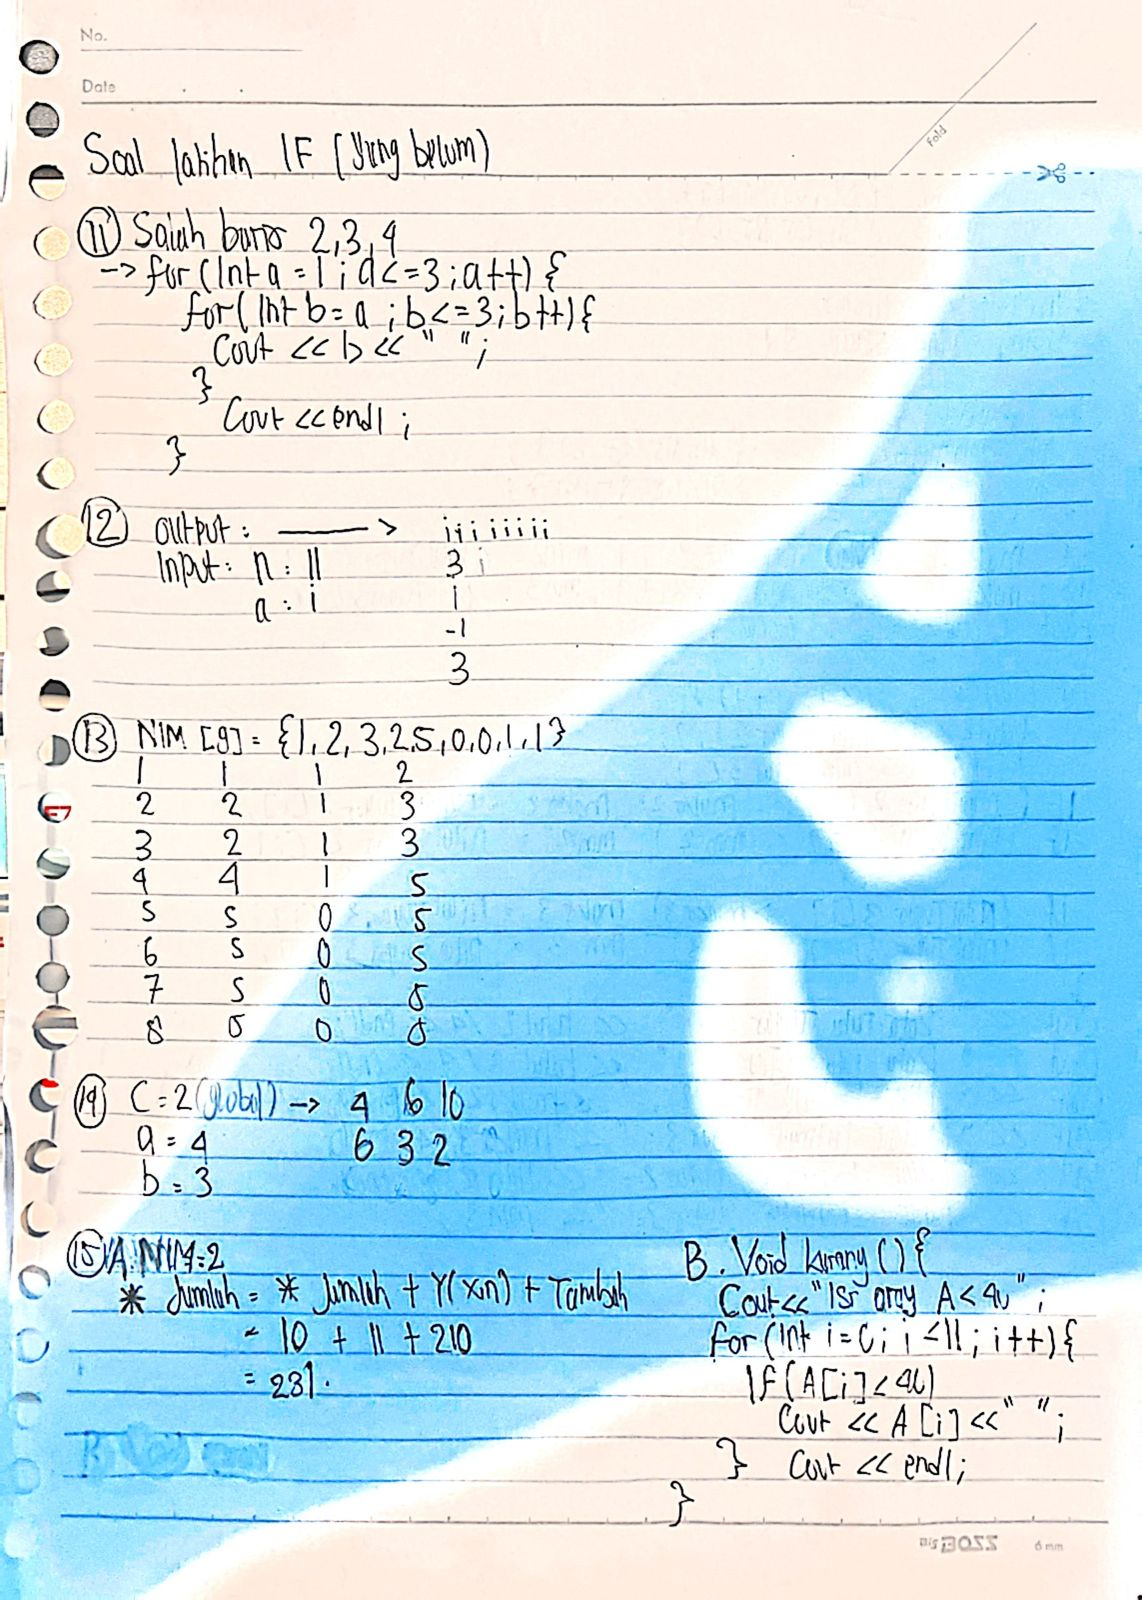 No.
Date
fold
Soal latihan IF (yang belum)
11 Salah baris 2,3,4
-> for (int a = 1 ; a <= 3 ; a++) {
for ( int b = a ; b <= 3 ; b++) {
Cout << b << " " ;
}
Cout << endl ;
}
12 output : ———> iiiiiiii
Input : n : 11 3 i
a : i 1
-1
3
13 NIM [9] = {1, 2, 3, 2, 5, 0, 0, 1, 1}
1 1 1 2
2 2 1 3
3 2 1 3
4 4 1 5
5 5 0 5
6 5 0 5
7 5 0 5
8 5 0 5
14 C = 2 (global) -> 4 6 10
a = 4 6 3 2
b = 3
15 A NIM = 2
* Jumlah = * Jumlah + Y(x,n) + Tambah
= 10 + 11 + 210
= 231.
B. Void kurang () {
Cout << "Isi array A < 40" ;
for (int i = 0 ; i < 11 ; i++) {
If (A[i] < 40)
Cout << A [i] << " " ;
} Cout << endl ;
}
Big BOSS 6 mm